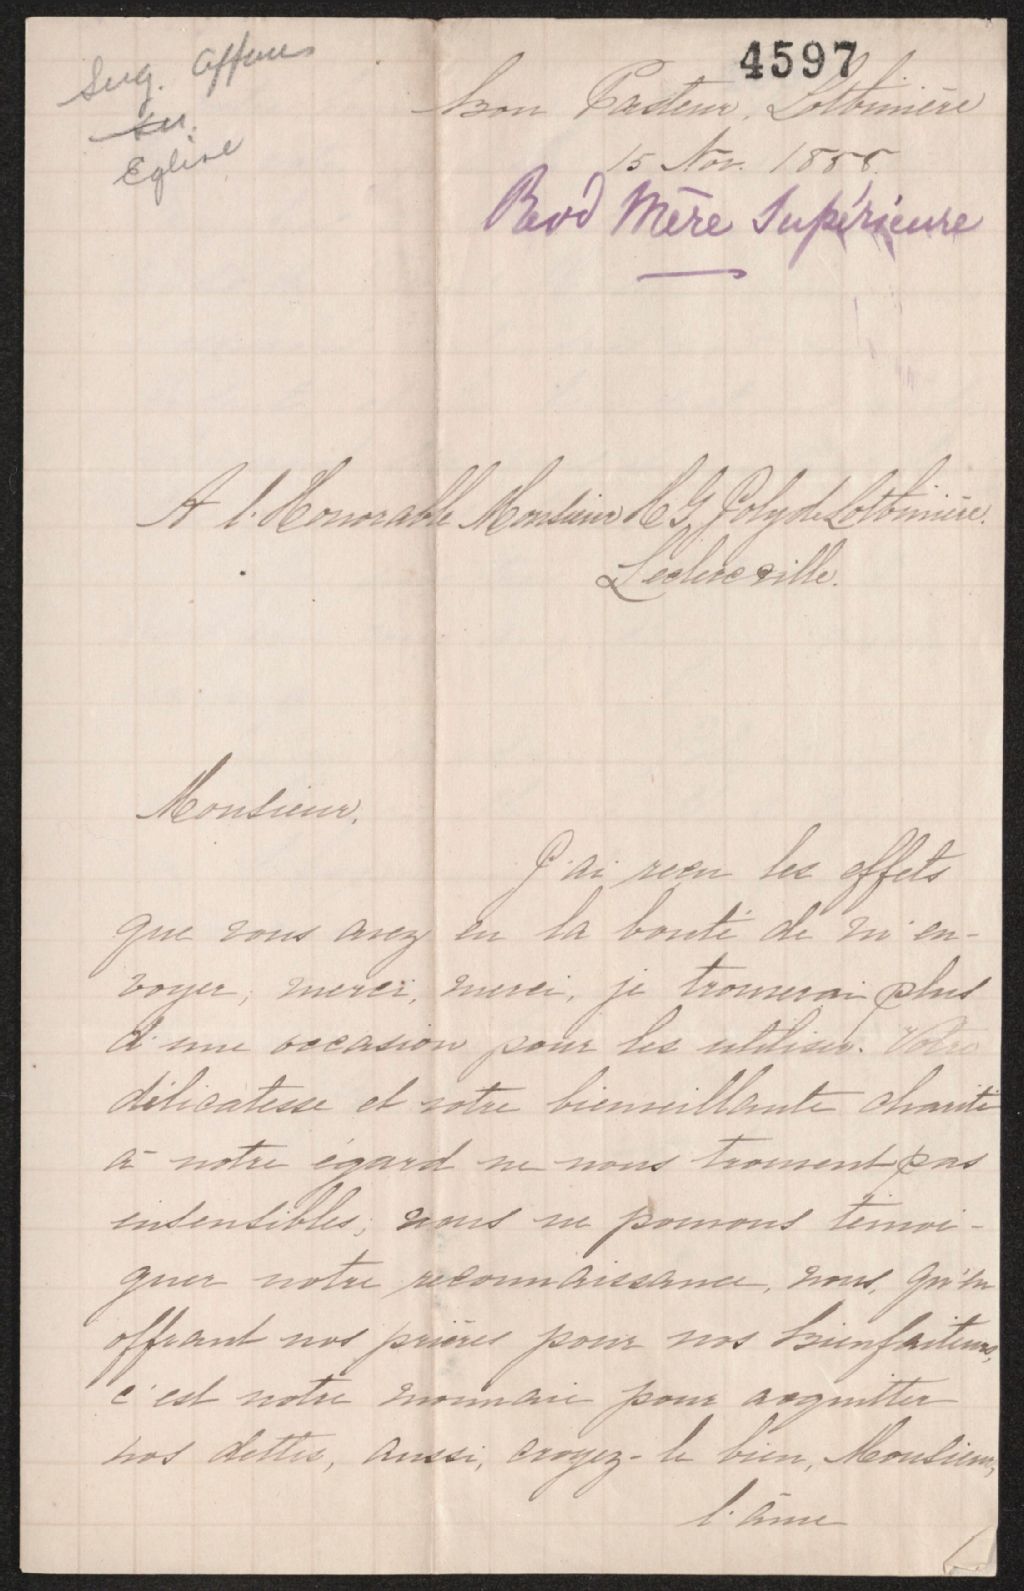 Seig. Affaires
Eglise
4597
Bon Pasteur, Lotbinière
15 Nov. 1888.
Revd Mère Supérieure
A l'Honorable Monsieur H G Joly de Lotbinière.
Leclercville.
Monsieur,
J'ai reçu les effets
que vous avez eu la bonté de m'en-
voyer; merci, merci, je trouverai plus
d'une occasion pour les utiliser. Votre
délicatesse et votre bienveillante charité
à notre égard ne nous trouvent pas
insensibles; nous ne pouvons témoi-
gner notre reconnaissance, nous, qu'en
offrant nos prières pour nos bienfaiteurs,
c'est notre monnaie pour acquitter
nos dettes, aussi, croyez-le bien, Monsieur,
l'âme